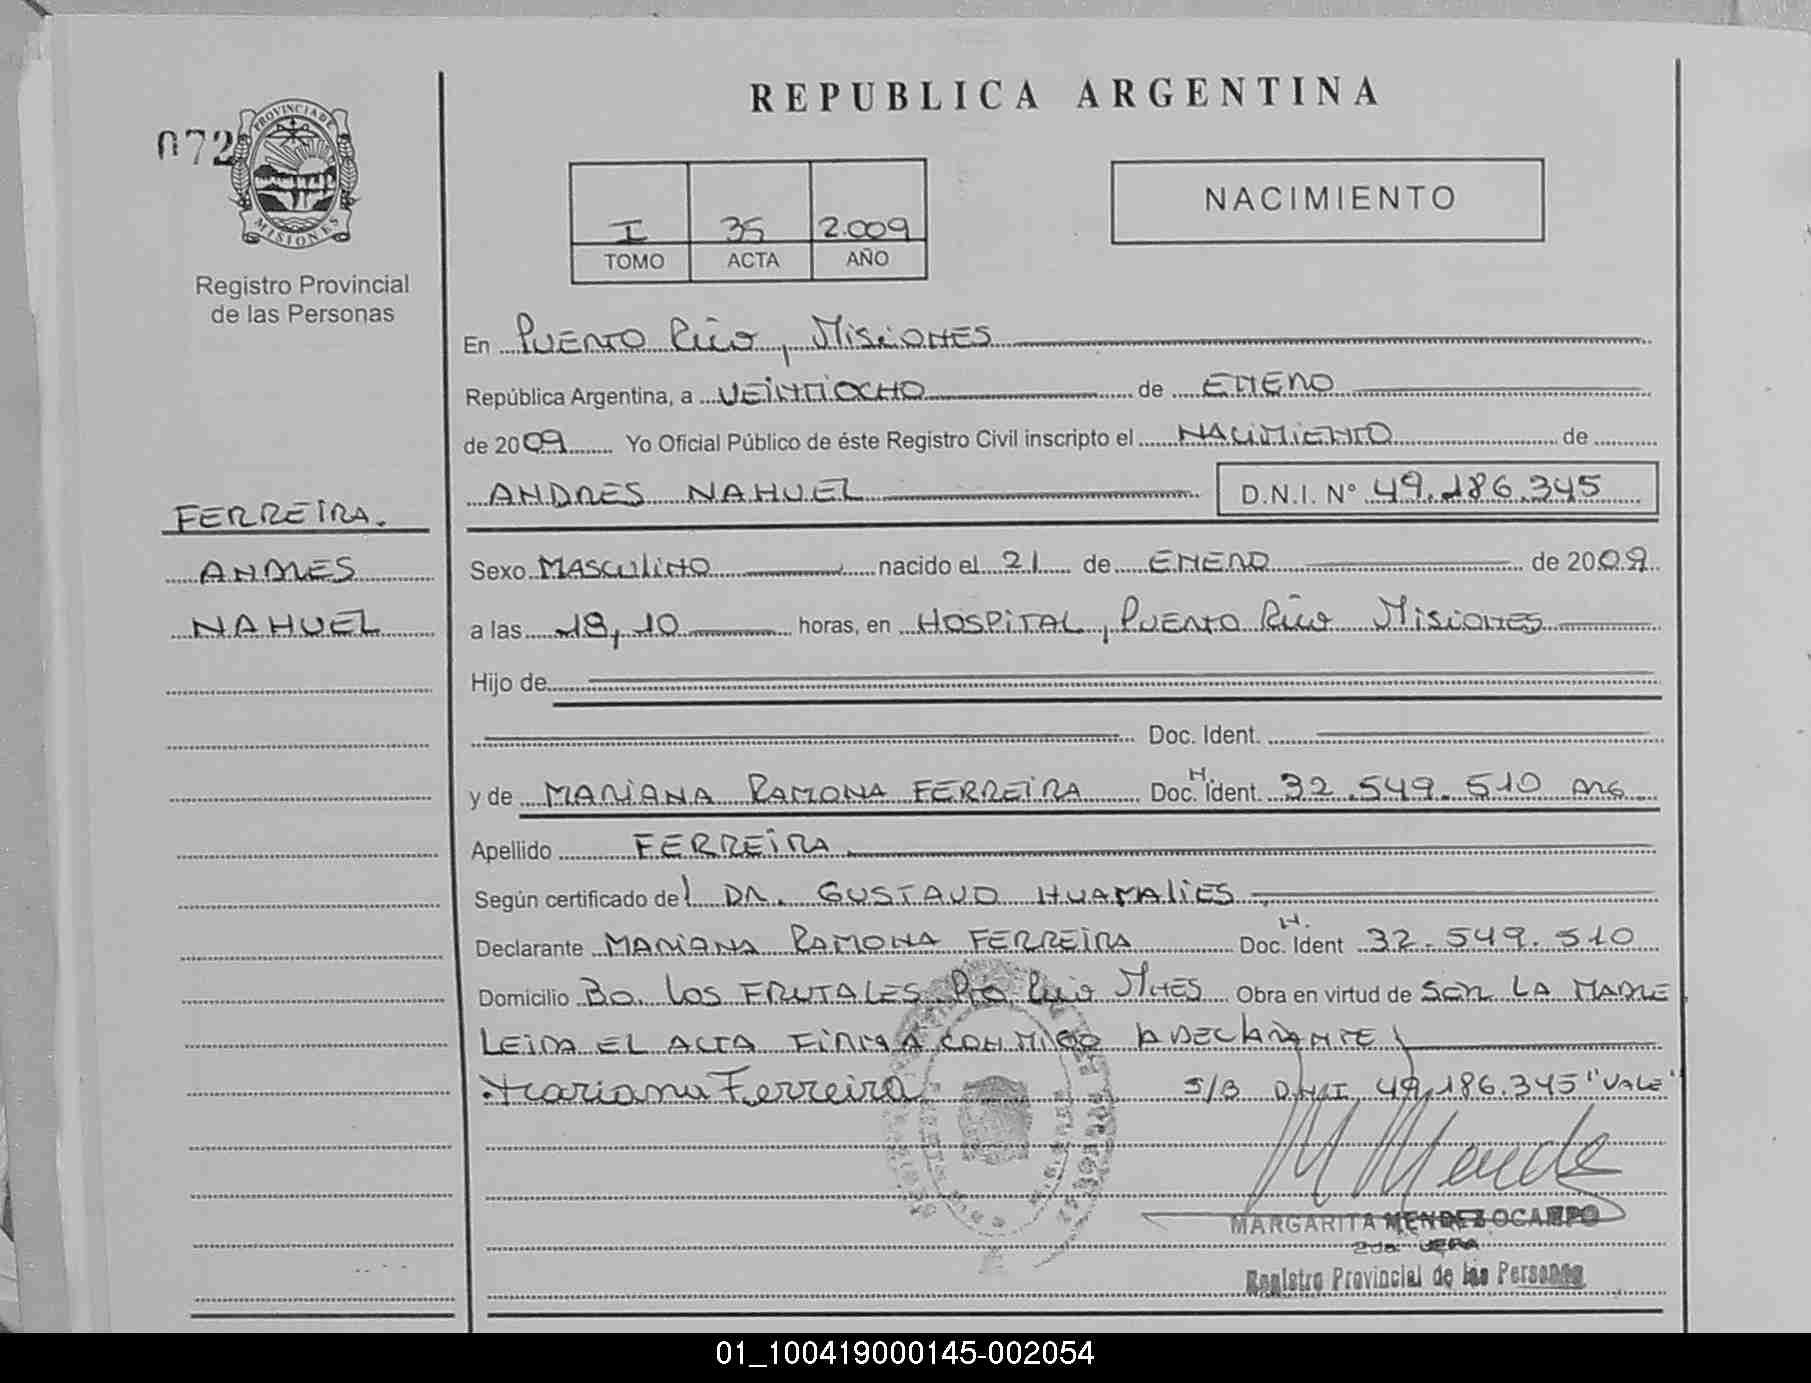 REPUBLICA ARGENTINA
072
PROVINCIA DE
MISIONES
Registro Provincial
de las Personas
I 35 2.009
TOMO ACTA AÑO
NACIMIENTO
En PUERTO RICO, MISIONES
República Argentina, a VEINTIOCHO de ENERO
de 2009 Yo Oficial Público de éste Registro Civil inscripto el NACIMIENTO de
ANDRES NAHUEL D.N.I. N° 49.186.345
FERREIRA.
ANDRES
NAHUEL
Sexo MASCULINO nacido el 21 de ENERO de 2009
a las 18,10 horas, en HOSPITAL, PUERTO RICO MISIONES
Hijo de
Doc. Ident.
y de MARIANA RAMONA FERREIRA Doc. N. Ident. 32.549.510 ARG
Apellido FERREIRA
Según certificado del DR. GUSTAVO HUAMALIES
Declarante MARIANA RAMONA FERREIRA Doc. N. Ident 32.549.510
Domicilio Bo. LOS FRUTALES Pto Rico Mnes Obra en virtud de SER LA MADRE
LEIDA EL ACTA FIRMA CONMIGO LA DECLARANTE
Mariana Ferreira S/B DNI 49.186.345 "VALE"
M Mendez
MARGARITA MENDEZ OCAMPO
2da JERA
Registro Provincial de las Personas
01_100419000145-002054